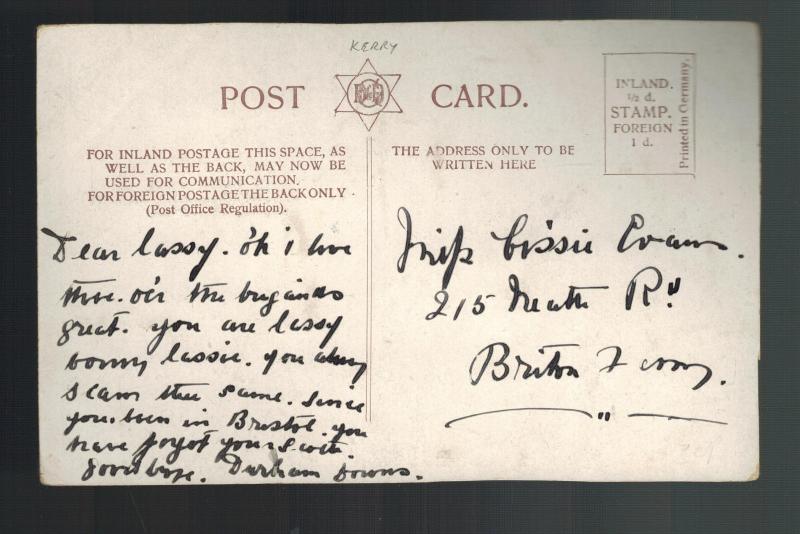 KERRY
POST CARD.
INLAND.
½ d.
STAMP.
FOREIGN
1 d.
Printed in Germany.
FOR INLAND POSTAGE THIS SPACE, AS
WELL AS THE BACK, MAY NOW BE
USED FOR COMMUNICATION.
FOR FOREIGN POSTAGE THE BACK ONLY
(Post Office Regulation).
THE ADDRESS ONLY TO BE
WRITTEN HERE
Dear lassy. oh i love
thee. o'er the
great. you are lassy
bonny lassie. you
the same. since
you. been in Bristol. you
have forgot your
Good bye. Durham Downs.
Miss Cissie Evans.
215 Neath Rd
Briton Ferry.